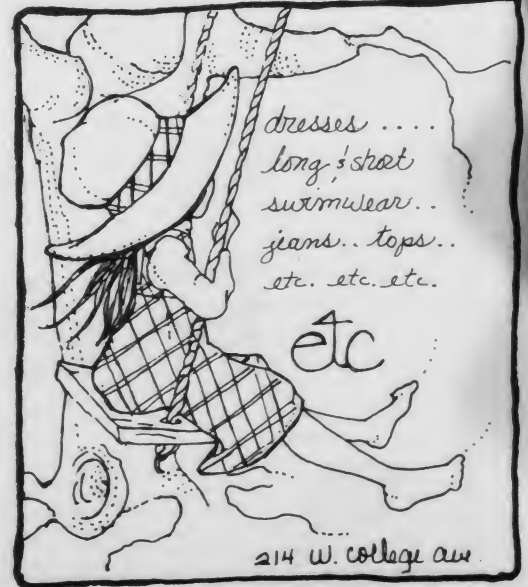 dresses ....
long & short
swimwear..
jeans.. tops..
etc. etc. etc.
etc
214 W. college ave.